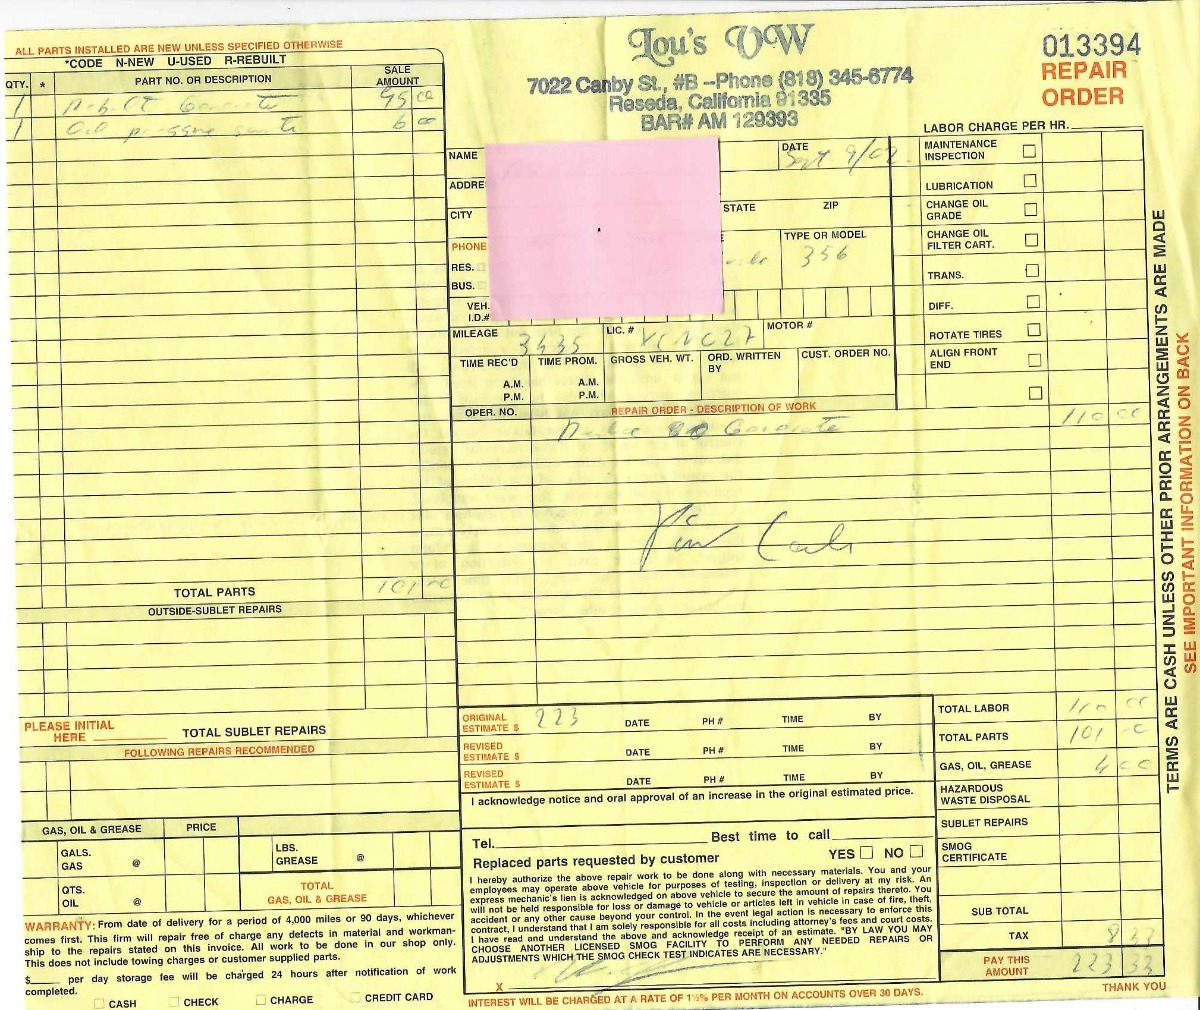 ALL PARTS INSTALLED ARE NEW UNLESS SPECIFIED OTHERWISE
*CODE N-NEW U-USED R-REBUILT
QTY. * PART NO. OR DESCRIPTION SALE AMOUNT
1 Rebuilt Generator 95 00
1 Oil pressure switch 6 00
TOTAL PARTS 101 00
OUTSIDE-SUBLET REPAIRS
PLEASE INITIAL HERE
TOTAL SUBLET REPAIRS
FOLLOWING REPAIRS RECOMMENDED
GAS, OIL & GREASE PRICE
GALS. GAS @
LBS. GREASE @
QTS. OIL @
TOTAL GAS, OIL & GREASE
WARRANTY: From date of delivery for a period of 4,000 miles or 90 days, whichever
comes first. This firm will repair free of charge any defects in material and workman-
ship to the repairs stated on this invoice. All work to be done in our shop only.
This does not include towing charges or customer supplied parts.
$ per day storage fee will be charged 24 hours after notification of work
completed.
CASH CHECK CHARGE CREDIT CARD
Lou's VW
7022 Canby St., #B --Phone (818) 345-6774
Reseda, California 91335
BAR# AM 129393
013394
REPAIR
ORDER
LABOR CHARGE PER HR.
NAME
DATE Sept 9/02
ADDRE
CITY STATE ZIP
PHONE
RES.
BUS.
TYPE OR MODEL
356
VEH. I.D.#
MILEAGE 3435 LIC. # MOTOR #
TIME REC'D TIME PROM. GROSS VEH. WT. ORD. WRITTEN BY CUST. ORDER NO.
A.M. A.M.
P.M. P.M.
MAINTENANCE INSPECTION
LUBRICATION
CHANGE OIL GRADE
CHANGE OIL FILTER CART.
TRANS.
DIFF.
ROTATE TIRES
ALIGN FRONT END
OPER. NO. REPAIR ORDER - DESCRIPTION OF WORK
Generator 110 00
ORIGINAL ESTIMATE $ 223 DATE PH # TIME BY
REVISED ESTIMATE $ DATE PH # TIME BY
REVISED ESTIMATE $ DATE PH # TIME BY
I acknowledge notice and oral approval of an increase in the original estimated price.
Tel. Best time to call
Replaced parts requested by customer YES NO
I hereby authorize the above repair work to be done along with necessary materials. You and your
employees may operate above vehicle for purposes of testing, inspection or delivery at my risk. An
express mechanic's lien is acknowledged on above vehicle to secure the amount of repairs thereto. You
will not be held responsible for loss or damage to vehicle or articles left in vehicle in case of fire, theft,
accident or any other cause beyond your control. In the event legal action is necessary to enforce this
contract, I understand that I am solely responsible for all costs including attorney's fees and court costs.
I have read and understand the above and acknowledge receipt of an estimate. "BY LAW YOU MAY
CHOOSE ANOTHER LICENSED SMOG FACILITY TO PERFORM ANY NEEDED REPAIRS OR
ADJUSTMENTS WHICH THE SMOG CHECK TEST INDICATES ARE NECESSARY."
X
INTEREST WILL BE CHARGED AT A RATE OF 1½% PER MONTH ON ACCOUNTS OVER 30 DAYS.
TOTAL LABOR 110 00
TOTAL PARTS 101 00
GAS, OIL, GREASE 4 00
HAZARDOUS WASTE DISPOSAL
SUBLET REPAIRS
SMOG CERTIFICATE
SUB TOTAL
TAX 8 33
PAY THIS AMOUNT 223 33
THANK YOU
TERMS ARE CASH UNLESS OTHER PRIOR ARRANGEMENTS ARE MADE
SEE IMPORTANT INFORMATION ON BACK